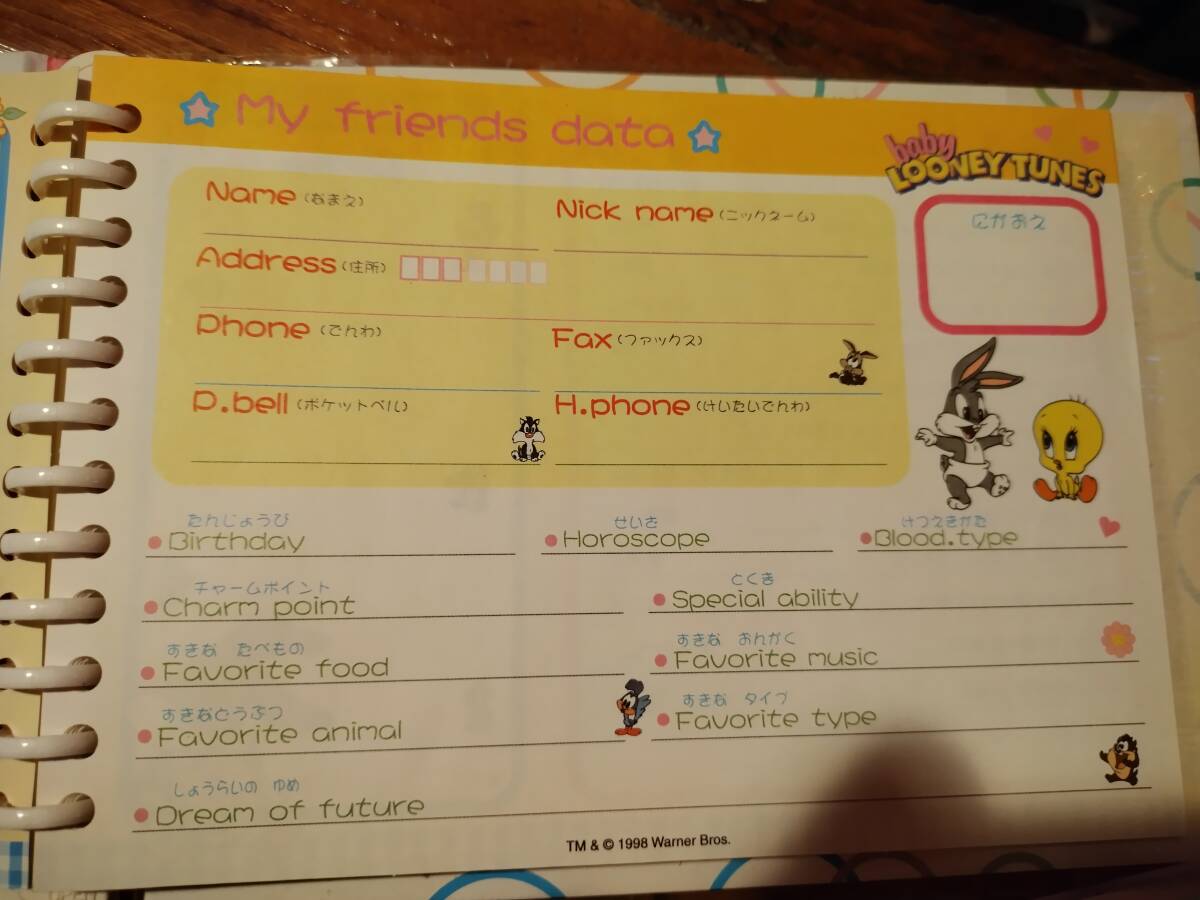 My friends data
baby
LOONEY TUNES
Name (なまえ)
Nick name (ニックネーム)
にがおえ
Address (住所)
Phone (でんわ)
Fax (ファックス)
P.bell (ポケットベル)
H.phone (けいたいでんわ)
たんじょうび
Birthday
せいざ
Horoscope
けつえきがた
Blood.type
チャームポイント
Charm point
とくぎ
Special ability
すきな たべもの
Favorite food
すきな おんがく
Favorite music
すきなどうぶつ
Favorite animal
すきな タイプ
Favorite type
しょうらいの ゆめ
Dream of future
TM & © 1998 Warner Bros.